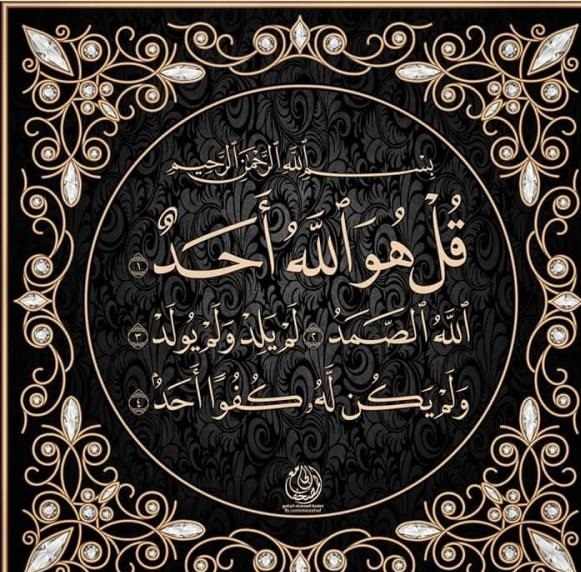 بِسْمِ ٱللَّهِ ٱلرَّحْمَٰنِ ٱلرَّحِيمِ
قُلْ هُوَ ٱللَّهُ أَحَدٌ ١
ٱللَّهُ ٱلصَّمَدُ ٢ لَمْ يَلِدْ وَلَمْ يُولَدْ ٣
وَلَمْ يَكُن لَّهُۥ كُفُوًا أَحَدٌۢ ٤
fb.com/moshaf